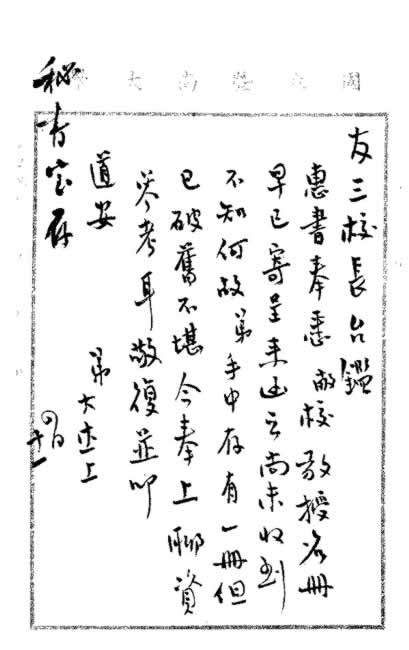 國立暨南大學
友三校長台鑑
惠書奉悉敝校教授名冊
早已寄呈来函云尚未收到
不知何故弟手中存有一冊但
已破舊不堪今奉上聊資
參考耳敬復並叩
道安
弟大
上
秘书室存